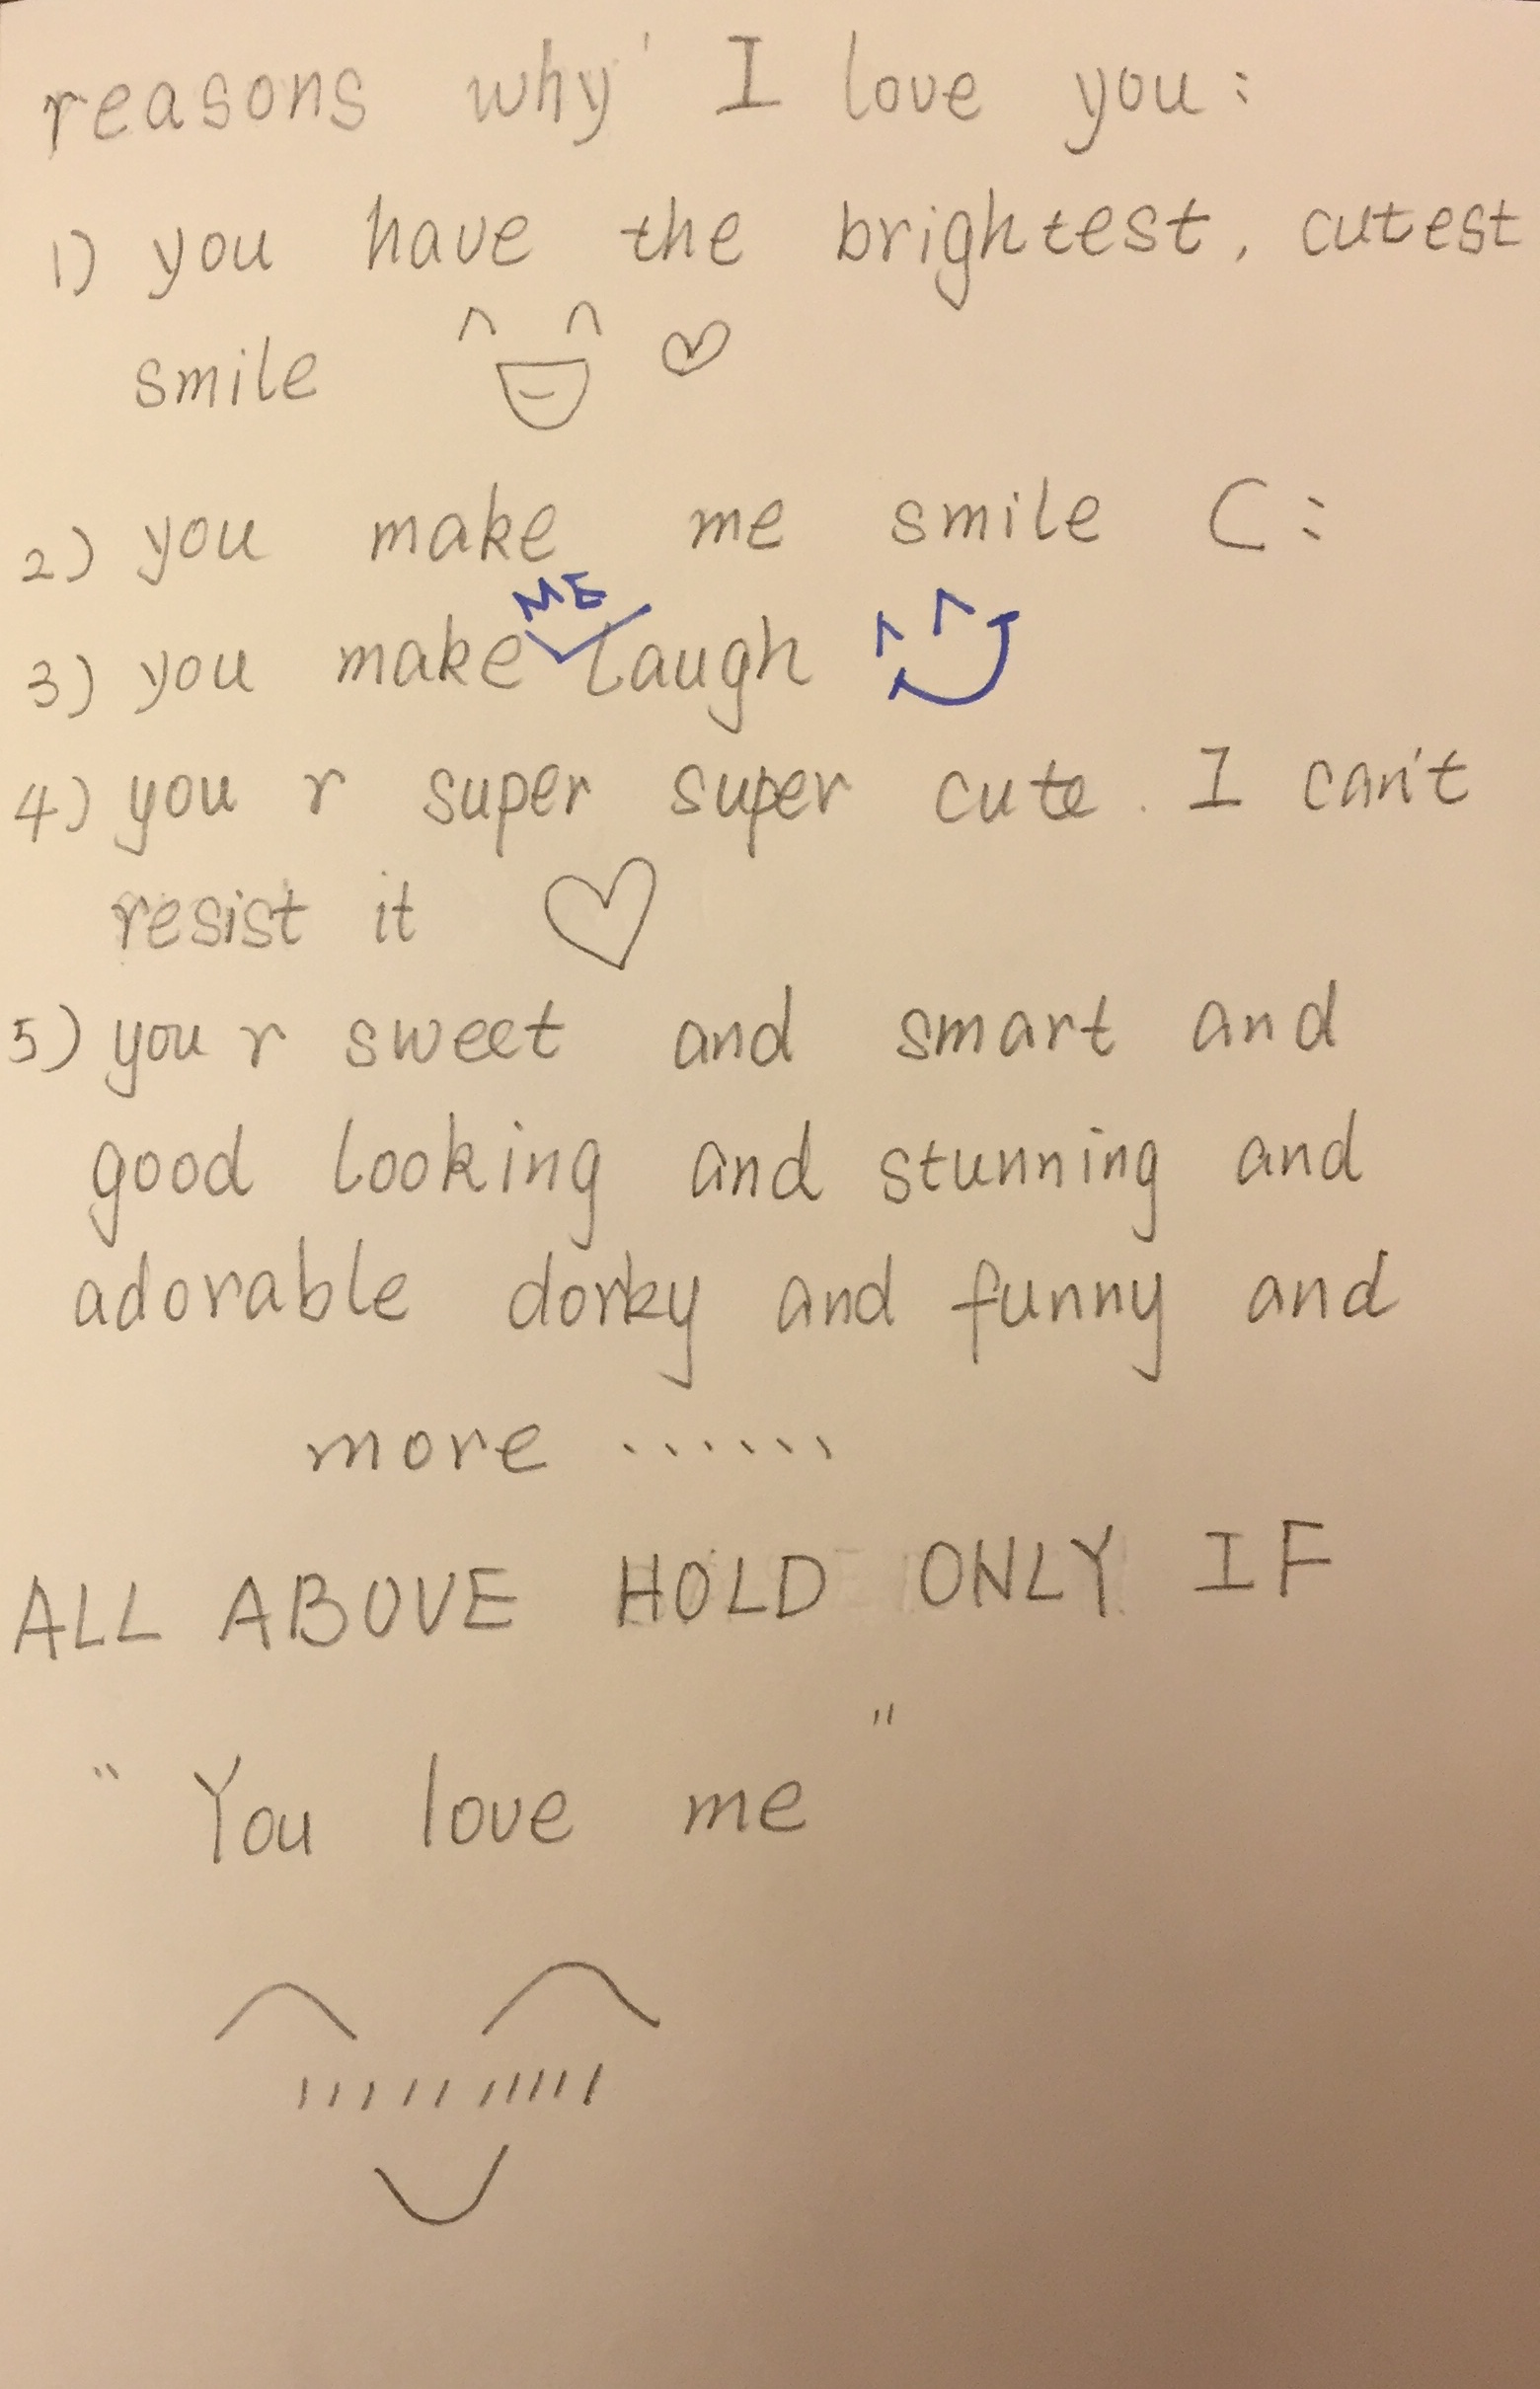 reasons why I love you:
1) you have the brightest, cutest
smile
2) you make me smile C:
ME
3) you make laugh
4) you r super super cute. I can't
resist it
5) you r sweet and smart and
good looking and stunning and
adorable dorky and funny and
more ......
ALL ABOVE HOLD ONLY IF
"You love me"